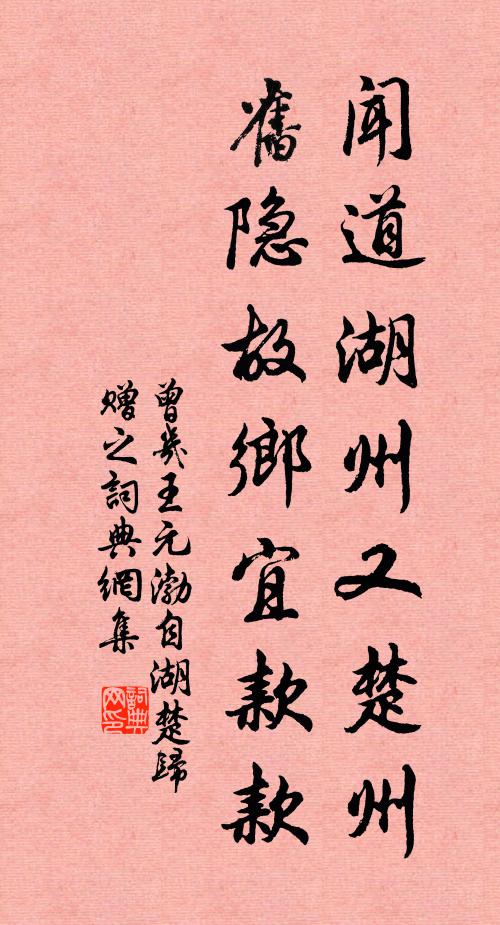 聞道湖州又楚州
舊隐故鄉宜款款
曾幾王元渤自湖楚歸
赠之詞典網集
詞典
网印